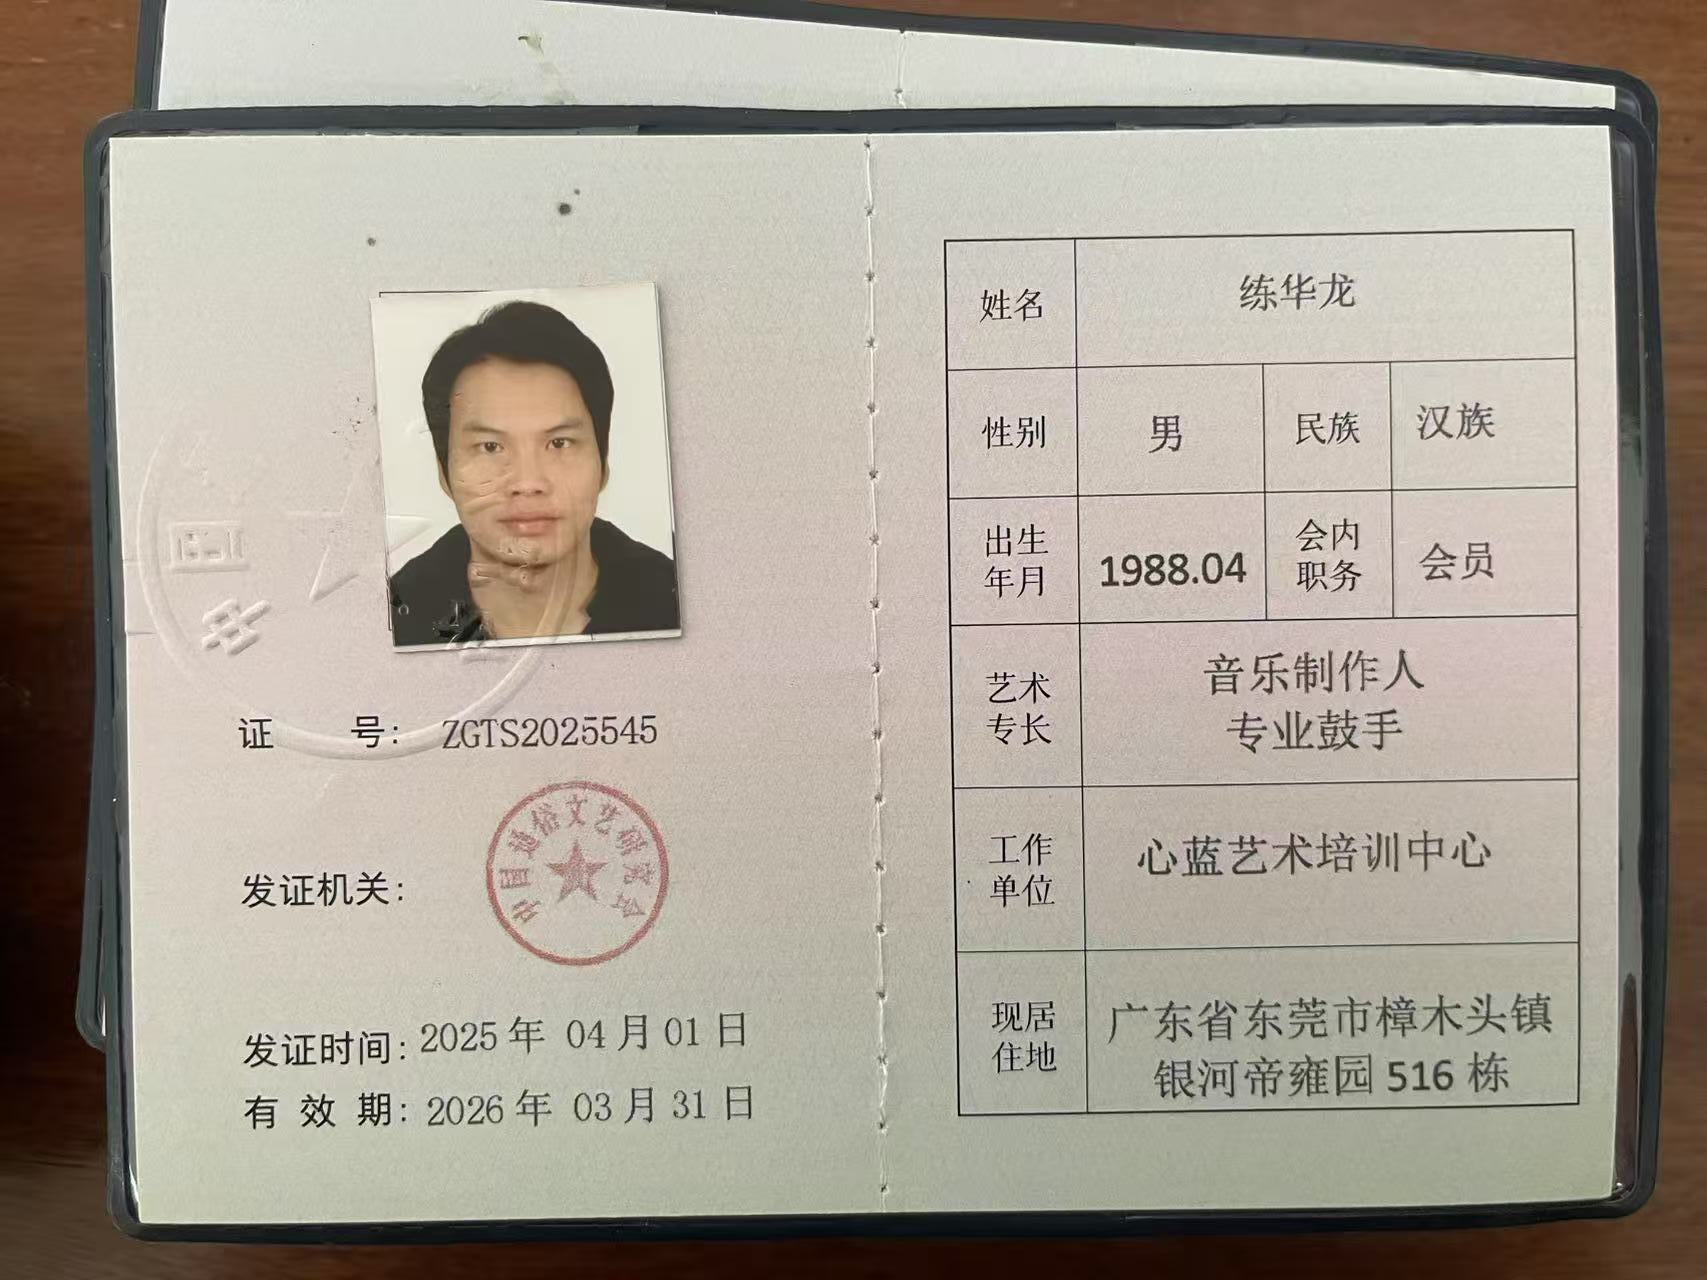 证 号： ZGTS2025545
发证机关：
中国通俗文艺研究会
发证时间：2025年 04月01日
有 效 期：2026年 03月31日
姓名 练华龙
性别 男 民族 汉族
出生年月 1988.04 会内职务 会员
艺术专长 音乐制作人
专业鼓手
工作单位 心蓝艺术培训中心
现居住地 广东省东莞市樟木头镇
银河帝雍园 516 栋